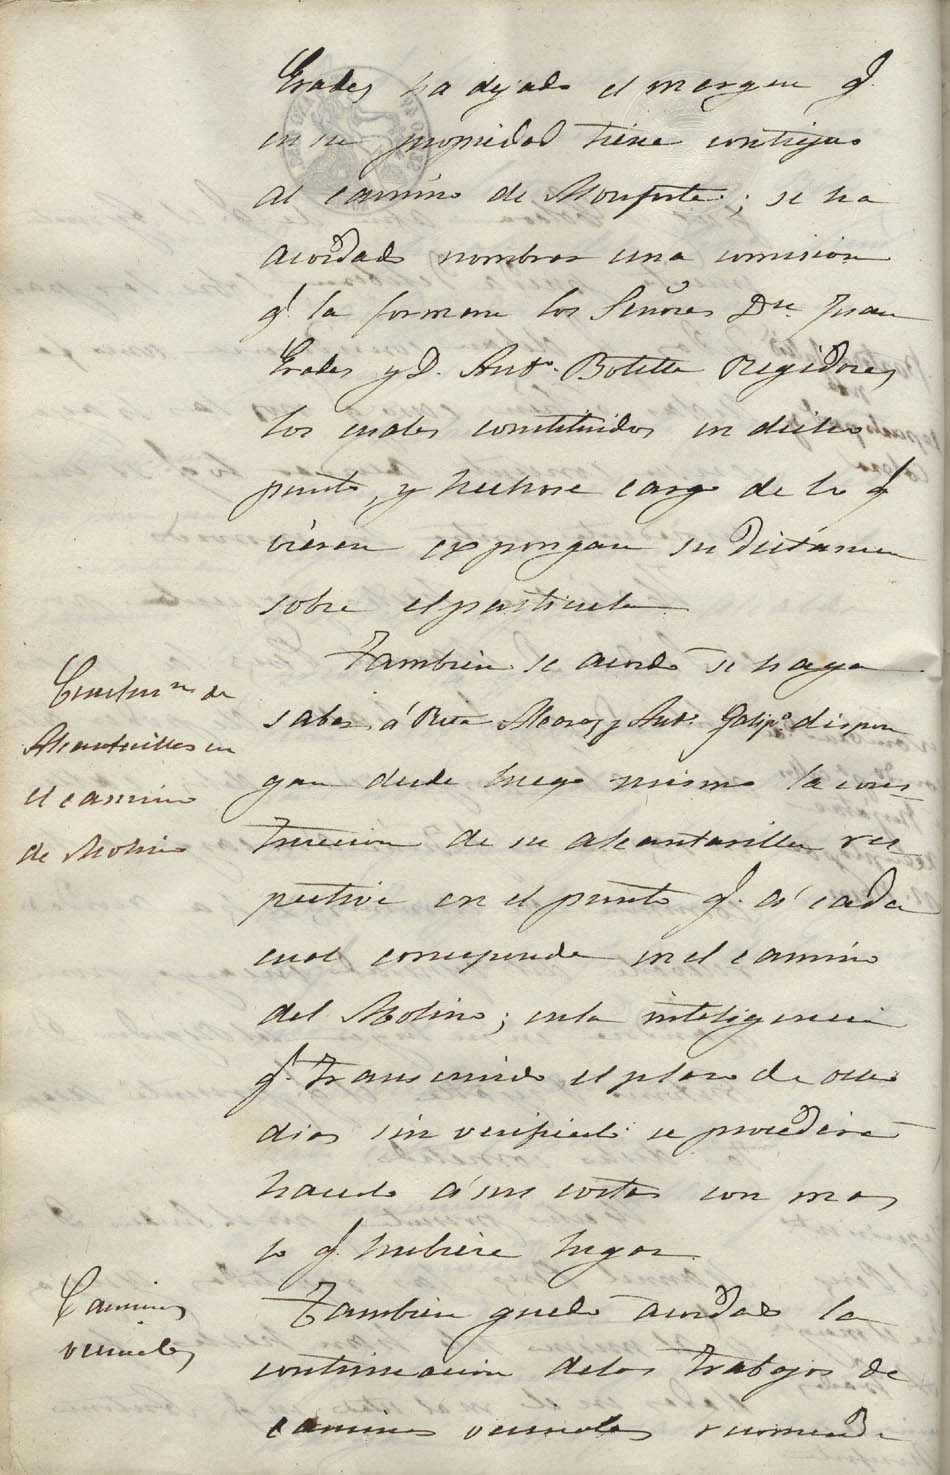 Grades ha dejado el margen q.
en su propiedad tiene contiguo
al camino de Monforte; se ha
acordado nombrar una comision
q.e la formaran los Señores D.n Juan
Grades y D. Ant.o Botella Regidores
los cuales constituidos en dicho
punto, y hechose cargo de lo q.e
vieren expongan su dictámen
sobre el particular
Construc.on de
Alcantarillas en
el camino
de Molino
Tambien se acordó se haga
saber á Rita Alcaraz y Ant.o dispon
gan desde luego mismo la cons
truccion de su alcantarilla res
pective en el punto q.e á cada
cual corresponde en el camino
del Molino; en la inteligencia
q.e transcurrido el plazo de ocho
dias sin verificarlo se procederá
hacerlo á sus costas con mas
lo q.e hubiere lugar
Caminos
vecinales
Tambien quedó acordado la
continuacion de los trabajos de
caminos vecinales recomenda